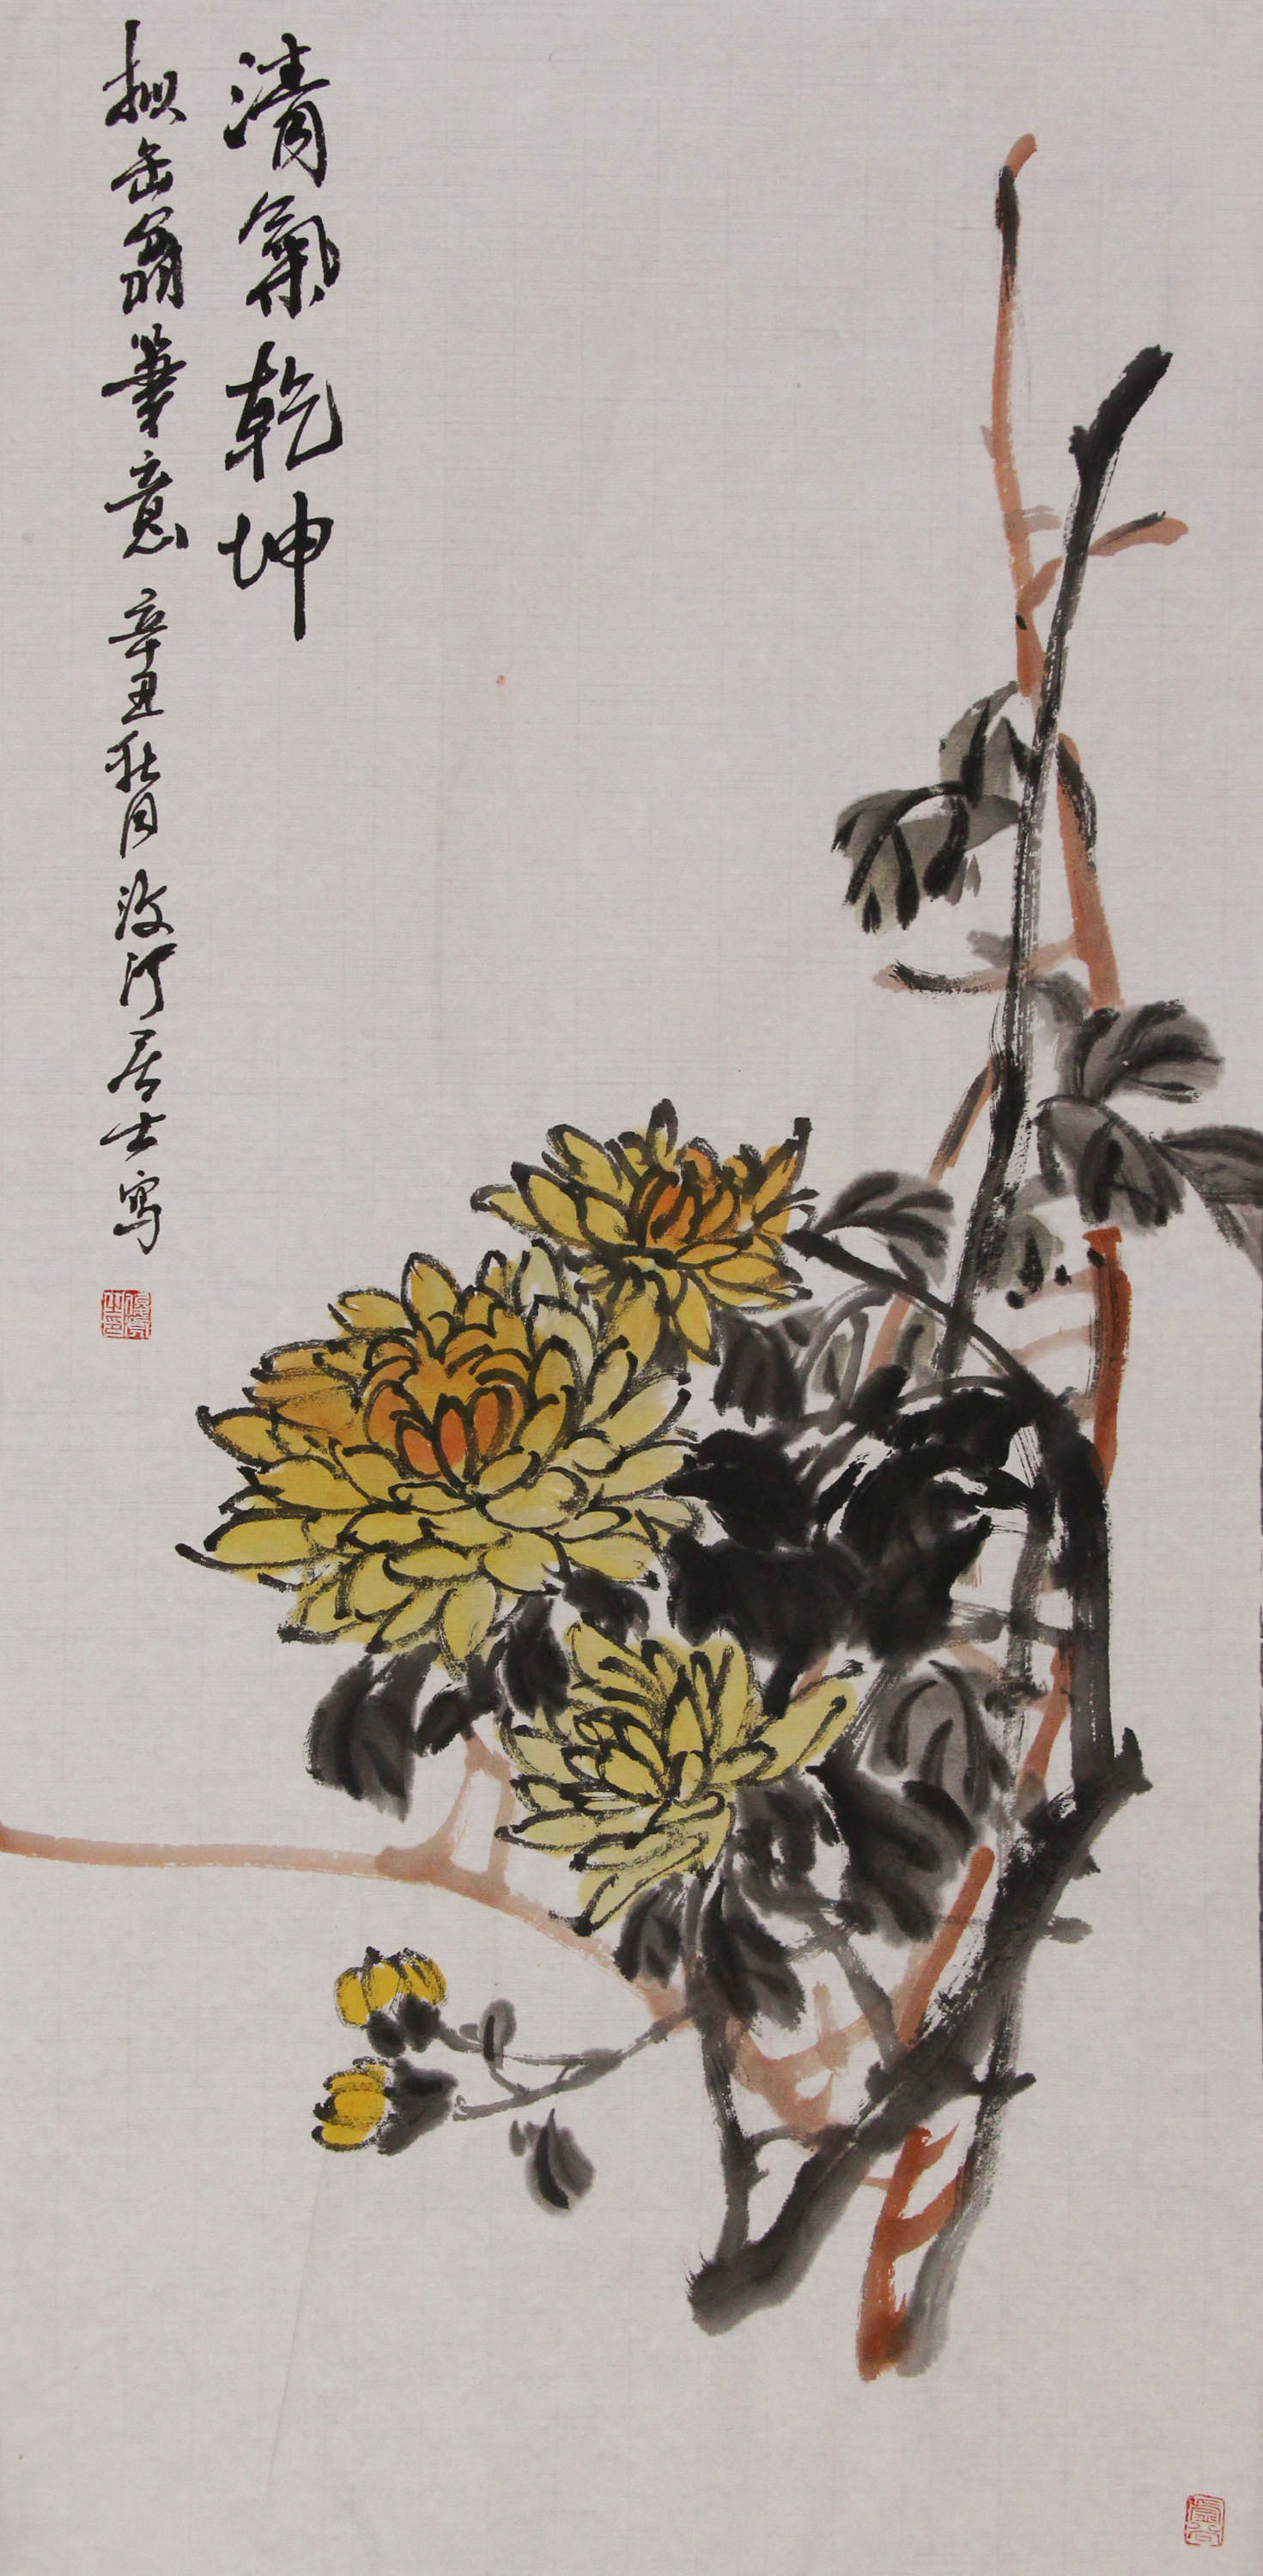 清氣乾坤
拟缶翁筆意 辛丑秋月 汶河居士寫